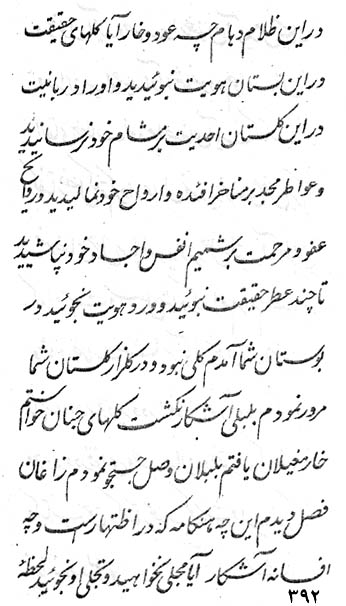 در این ظلام دهام چه عود و خار آیا گلهای حقیقت
در این بستان هویت نبوئیدید و اوراد ربانیت
در این گلستان احدیت بر مشام خود نرسانیدید
و عواطر مجد بر مناخر افئده و ارواح خود نمالیدید و روایح
عفو و مرحمت بر شمیم انفس و اجساد خود نپاشیدید
تا چند عطر حقیقت نبوئید و ورد هویت نجوئید در
بوستان شما آمدم گلی نبود و در گلزار گلستان شما
مرور نمودم بلبلی آشکار نگشت گلهای جنان خواستم
خار مغیلان یافتم بلبلان وصل جستجو نمودم زاغان
فصل دیدم این چه هنگامه که در اظتهار است و چه
افسانه آشکار آیا مجلی نخواهید و تجلی او نجوئید لحظهٔ
۳۹۲